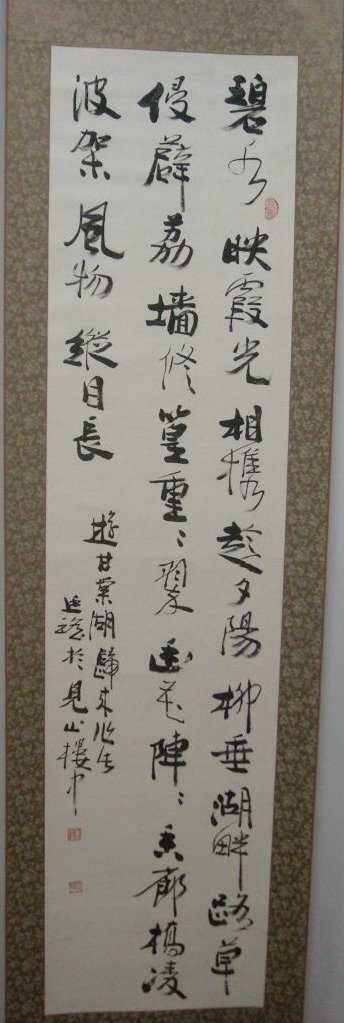 碧水映霞光相攜趁夕陽柳垂湖畔路草
侵薜荔墻修篁重〻翠幽花陣〻香廊橋凌
波架風物縱目長
遊甘棠湖歸來作
於見山樓中